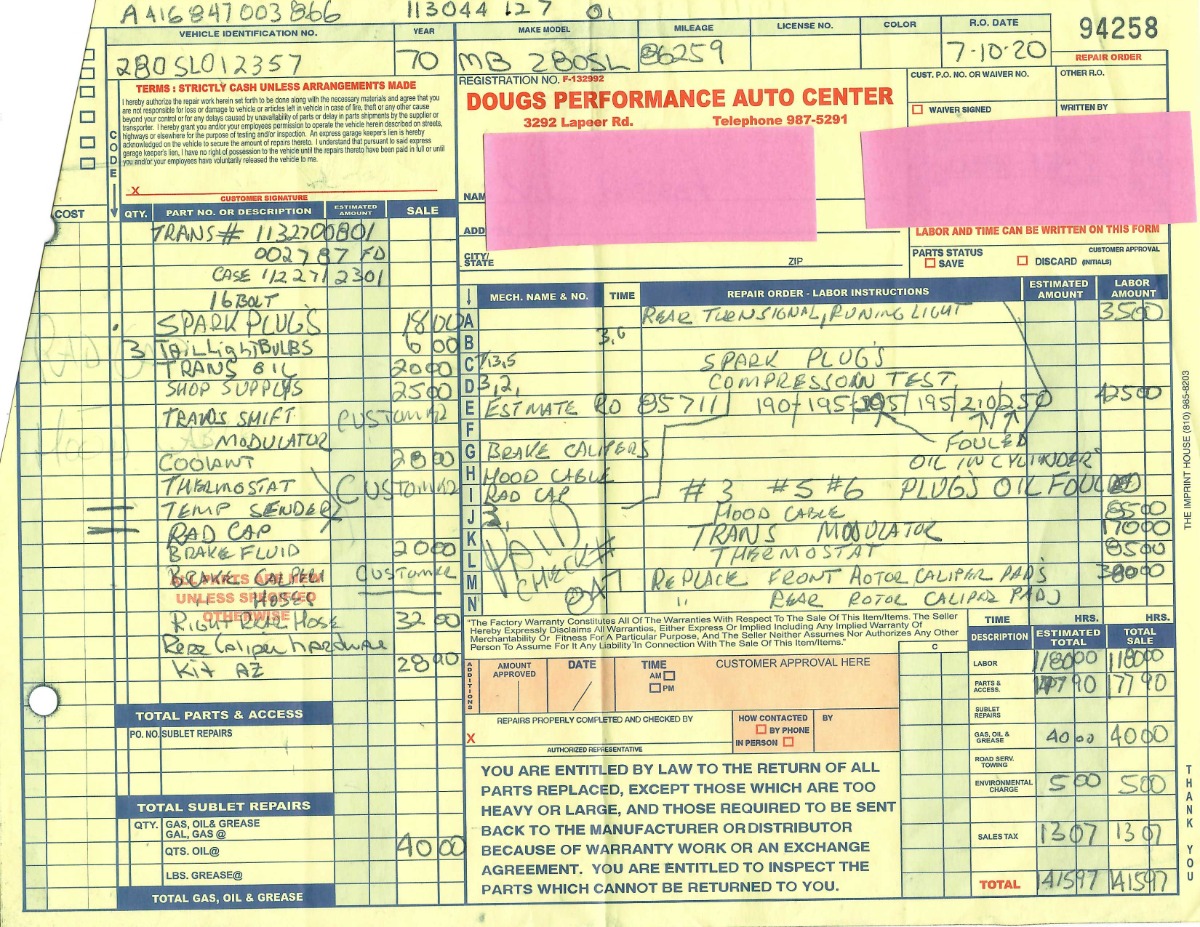 A 416 847 003 866 113044 12 7 01
VEHICLE IDENTIFICATION NO. YEAR MAKE MODEL MILEAGE LICENSE NO. COLOR R.O. DATE 94258
280SL012357 70 MB 280SL 86259 7-10-20 REPAIR ORDER
TERMS : STRICTLY CASH UNLESS ARRANGEMENTS MADE
I hereby authorize the repair work herein set forth to be done along with the necessary materials and agree that you are not responsible for loss or damage to vehicle or articles left in vehicle in case of fire, theft or any other cause beyond your control or for any delays caused by unavailability of parts or delay in parts shipments by the supplier or transporter. I hereby grant you and/your employees permission to operate the vehicle herein described on streets, highways or elsewhere for the purpose of testing and/or inspection. An express garage keeper's lien is hereby acknowledged on vehicle to secure the amount of repairs thereto. I understand that pursuant to said express garage keeper's lien, I have no right of possession to the vehicle until the repairs thereto have been paid in full or until you and/your employees have voluntarily released the vehicle to me.
X
CUSTOMER SIGNATURE
REGISTRATION NO. F-132992
DOUGS PERFORMANCE AUTO CENTER
3292 Lapeer Rd. Telephone 987-5291
CUST. P.O. NO. OR WAIVER NO. OTHER R.O.
WAIVER SIGNED WRITTEN BY
NAM
ADD
CITY/STATE ZIP
LABOR AND TIME CAN BE WRITTEN ON THIS FORM
PARTS STATUS CUSTOMER APPROVAL
SAVE DISCARD (INITIALS)
COST CODE QTY. PART NO. OR DESCRIPTION ESTIMATED AMOUNT SALE
TRANS# 1132700801
002787 FD
CASE 1122712301
16 BOLT
SPARK PLUG'S 18 00
3 TAIL Light BULBS 6 00
TRANS OIL 20 00
SHOP SUPPLYS 25 00
TRANS SHIFT
MODULATOR
COOLANT 28 00
THERMOSTAT
TEMP SENDER
RAD CAP
BRAKE FLUID 20 00
BRAKE CALIPER CUSTOMER
" HOSES
ALL PARTS ARE NEW
UNLESS SPECIFIED
OTHERWISE
Right Rear Hose 32 00
Rear Caliper hardware
Kit AZ 28 90
TOTAL PARTS & ACCESS.
PO. NO. SUBLET REPAIRS
TOTAL SUBLET REPAIRS
QTY. GAS, OIL& GREASE
GAL, GAS @
QTS. OIL@ 40 00
LBS. GREASE@
TOTAL GAS, OIL & GREASE
MECH. NAME & NO. TIME REPAIR ORDER - LABOR INSTRUCTIONS ESTIMATED AMOUNT LABOR AMOUNT
A REAR TURN SIGNAL, RUNING LIGHT 35 00
B
C SPARK PLUG'S
D 3,2, COMPRESSION TEST
E ESTIMATE RO 85711 190/195/195/195/210/250 425 00
F FOULED
G BRAKE CALIPERS OIL IN CYLINDER
H HOOD CABLE
I RAD CAP #3 #5 #6 PLUG'S OIL FOULED
J HOOD CABLE 85 00
K TRANS MODULATOR 170 00
L THERMOSTAT 85 00
M REPLACE FRONT ROTOR CALIPER PADS
N " REAR ROTOR CALIPER PADS
PAID
CHECK#
"The Factory Warranty Constitutes All Of The Warranties With Respect To The Sale Of This Item/Items. The Seller Hereby Expressly Disclaims All Warranties, Either Express Or Implied Including Any Implied Warranty Of Merchantability Or Fitness For A Particular Purpose, And The Seller Neither Assumes Nor Authorizes Any Other Person To Assume For It Any Liability In Connection With The Sale Of This Item/Items."
ADDITIONS AMOUNT APPROVED DATE TIME AM PM CUSTOMER APPROVAL HERE
REPAIRS PROPERLY COMPLETED AND CHECKED BY HOW CONTACTED BY
BY PHONE
X IN PERSON
AUTHORIZED REPRESENTATIVE
YOU ARE ENTITLED BY LAW TO THE RETURN OF ALL
PARTS REPLACED, EXCEPT THOSE WHICH ARE TOO
HEAVY OR LARGE, AND THOSE REQUIRED TO BE SENT
BACK TO THE MANUFACTURER OR DISTRIBUTOR
BECAUSE OF WARRANTY WORK OR AN EXCHANGE
AGREEMENT. YOU ARE ENTITLED TO INSPECT THE
PARTS WHICH CANNOT BE RETURNED TO YOU.
C TIME HRS. HRS.
DESCRIPTION ESTIMATED TOTAL TOTAL SALE
LABOR 1180 00 1180 00
PARTS & ACCESS. 177 90 177 90
SUBLET REPAIRS
GAS, OIL & GREASE 40 00 40 00
ROAD SERV. TOWING
ENVIRONMENTAL CHARGE 5 00 5 00
SALES TAX 13 07 13 07
TOTAL 1415 97 1415 97
THE IMPRINT HOUSE (810) 985-8203
THANK YOU